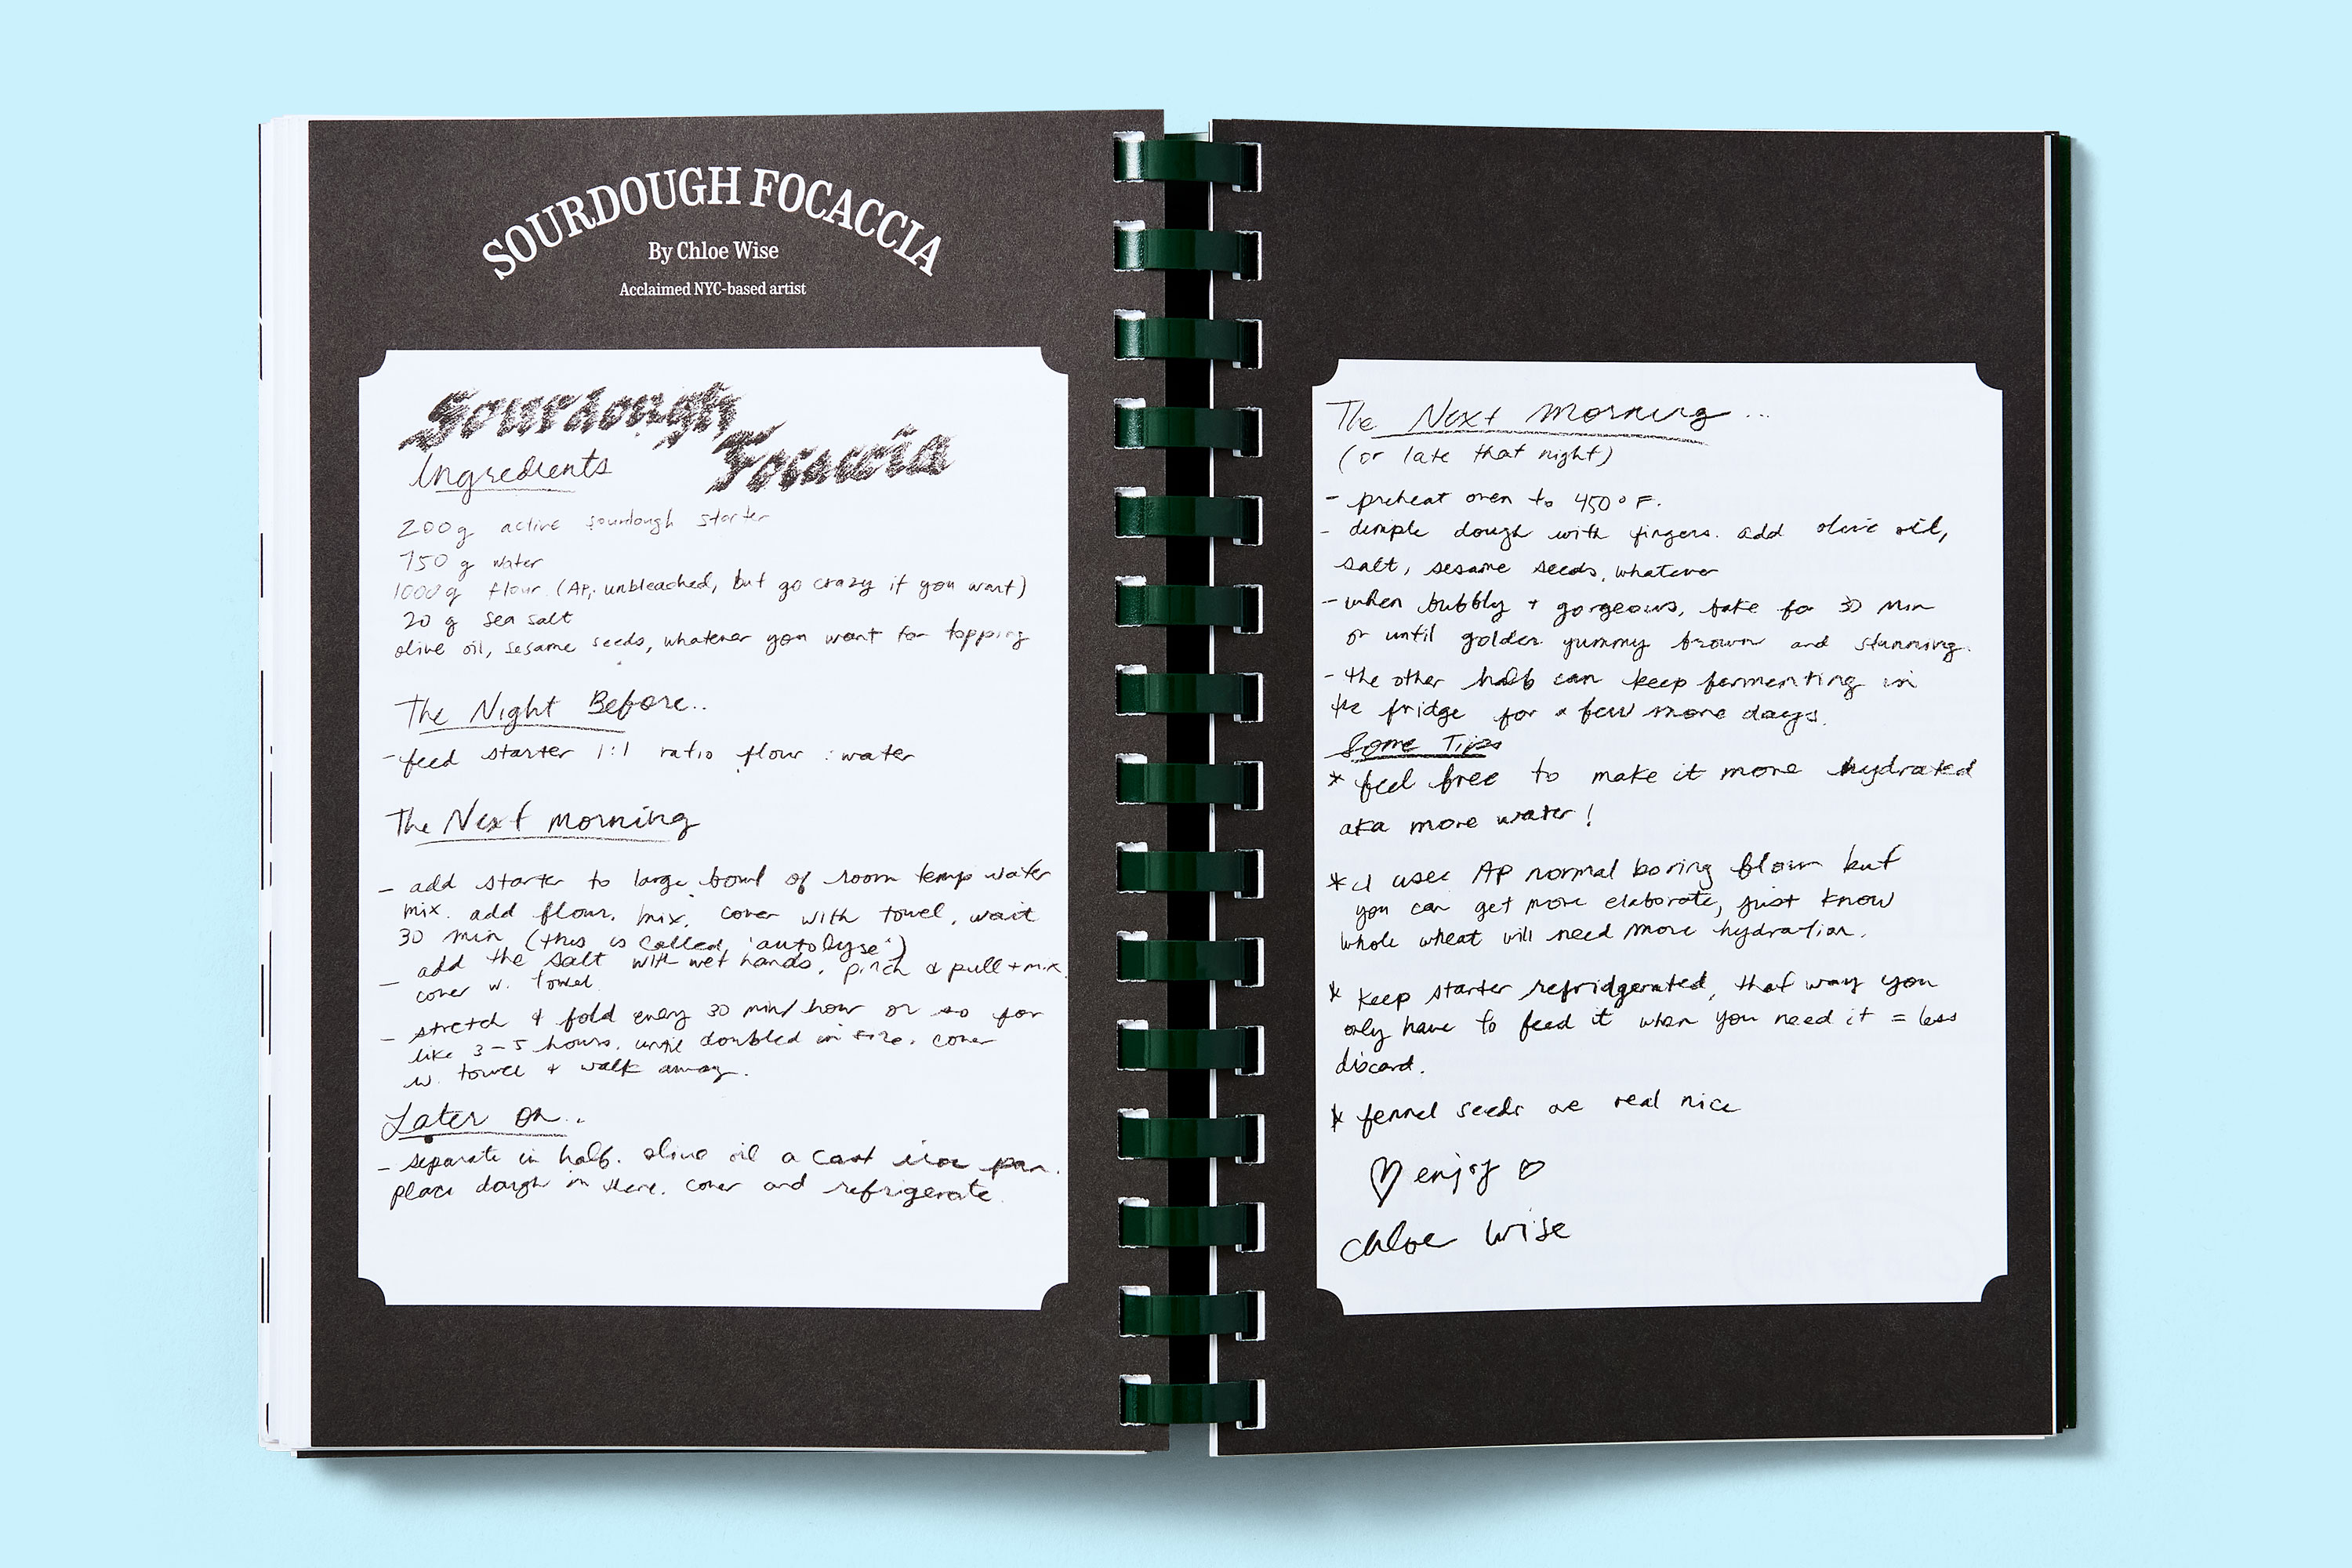 SOURDOUGH FOCACCIA
By Chloe Wise
Acclaimed NYC-based artist
Sourdough
Focaccia
Ingredients
200g active sourdough starter
750 g water
1000g flour (AP, unbleached, but go crazy if you want)
20 g sea salt
olive oil, sesame seeds, whatever you want for topping
The Night Before..
- feed starter 1:1 ratio flour : water
The Next morning
- add starter to large bowl of room temp water
mix. add flour. mix. cover with towel. wait
30 min (this is called "autolyse")
- add the salt with wet hands. pinch & pull + mix.
cover w. towel.
- stretch & fold every 30 min/hour or so for
like 3-5 hours. until doubled in size. cover
w. towel & walk away.
Later on..
- separate in half. olive oil a cast iron pan.
place dough in there. cover and refrigerate.
The Next morning...
(or late that night)
- preheat oven to 450° F.
- dimple dough with fingers. add olive oil,
salt, sesame seeds, whatever
- when bubbly + gorgeous, bake for 30 min
or until golden yummy brown and stunning.
- the other half can keep fermenting in
the fridge for a few more days.
Some Tips
* feel free to make it more hydrated
aka more water!
* I used AP normal boring flour but
you can get more elaborate, just know
whole wheat will need more hydration.
* keep starter refridgerated, that way you
only have to feed it when you need it = less
discard.
* fennel seeds are real nice
♡ enjoy ♡
Chloe Wise